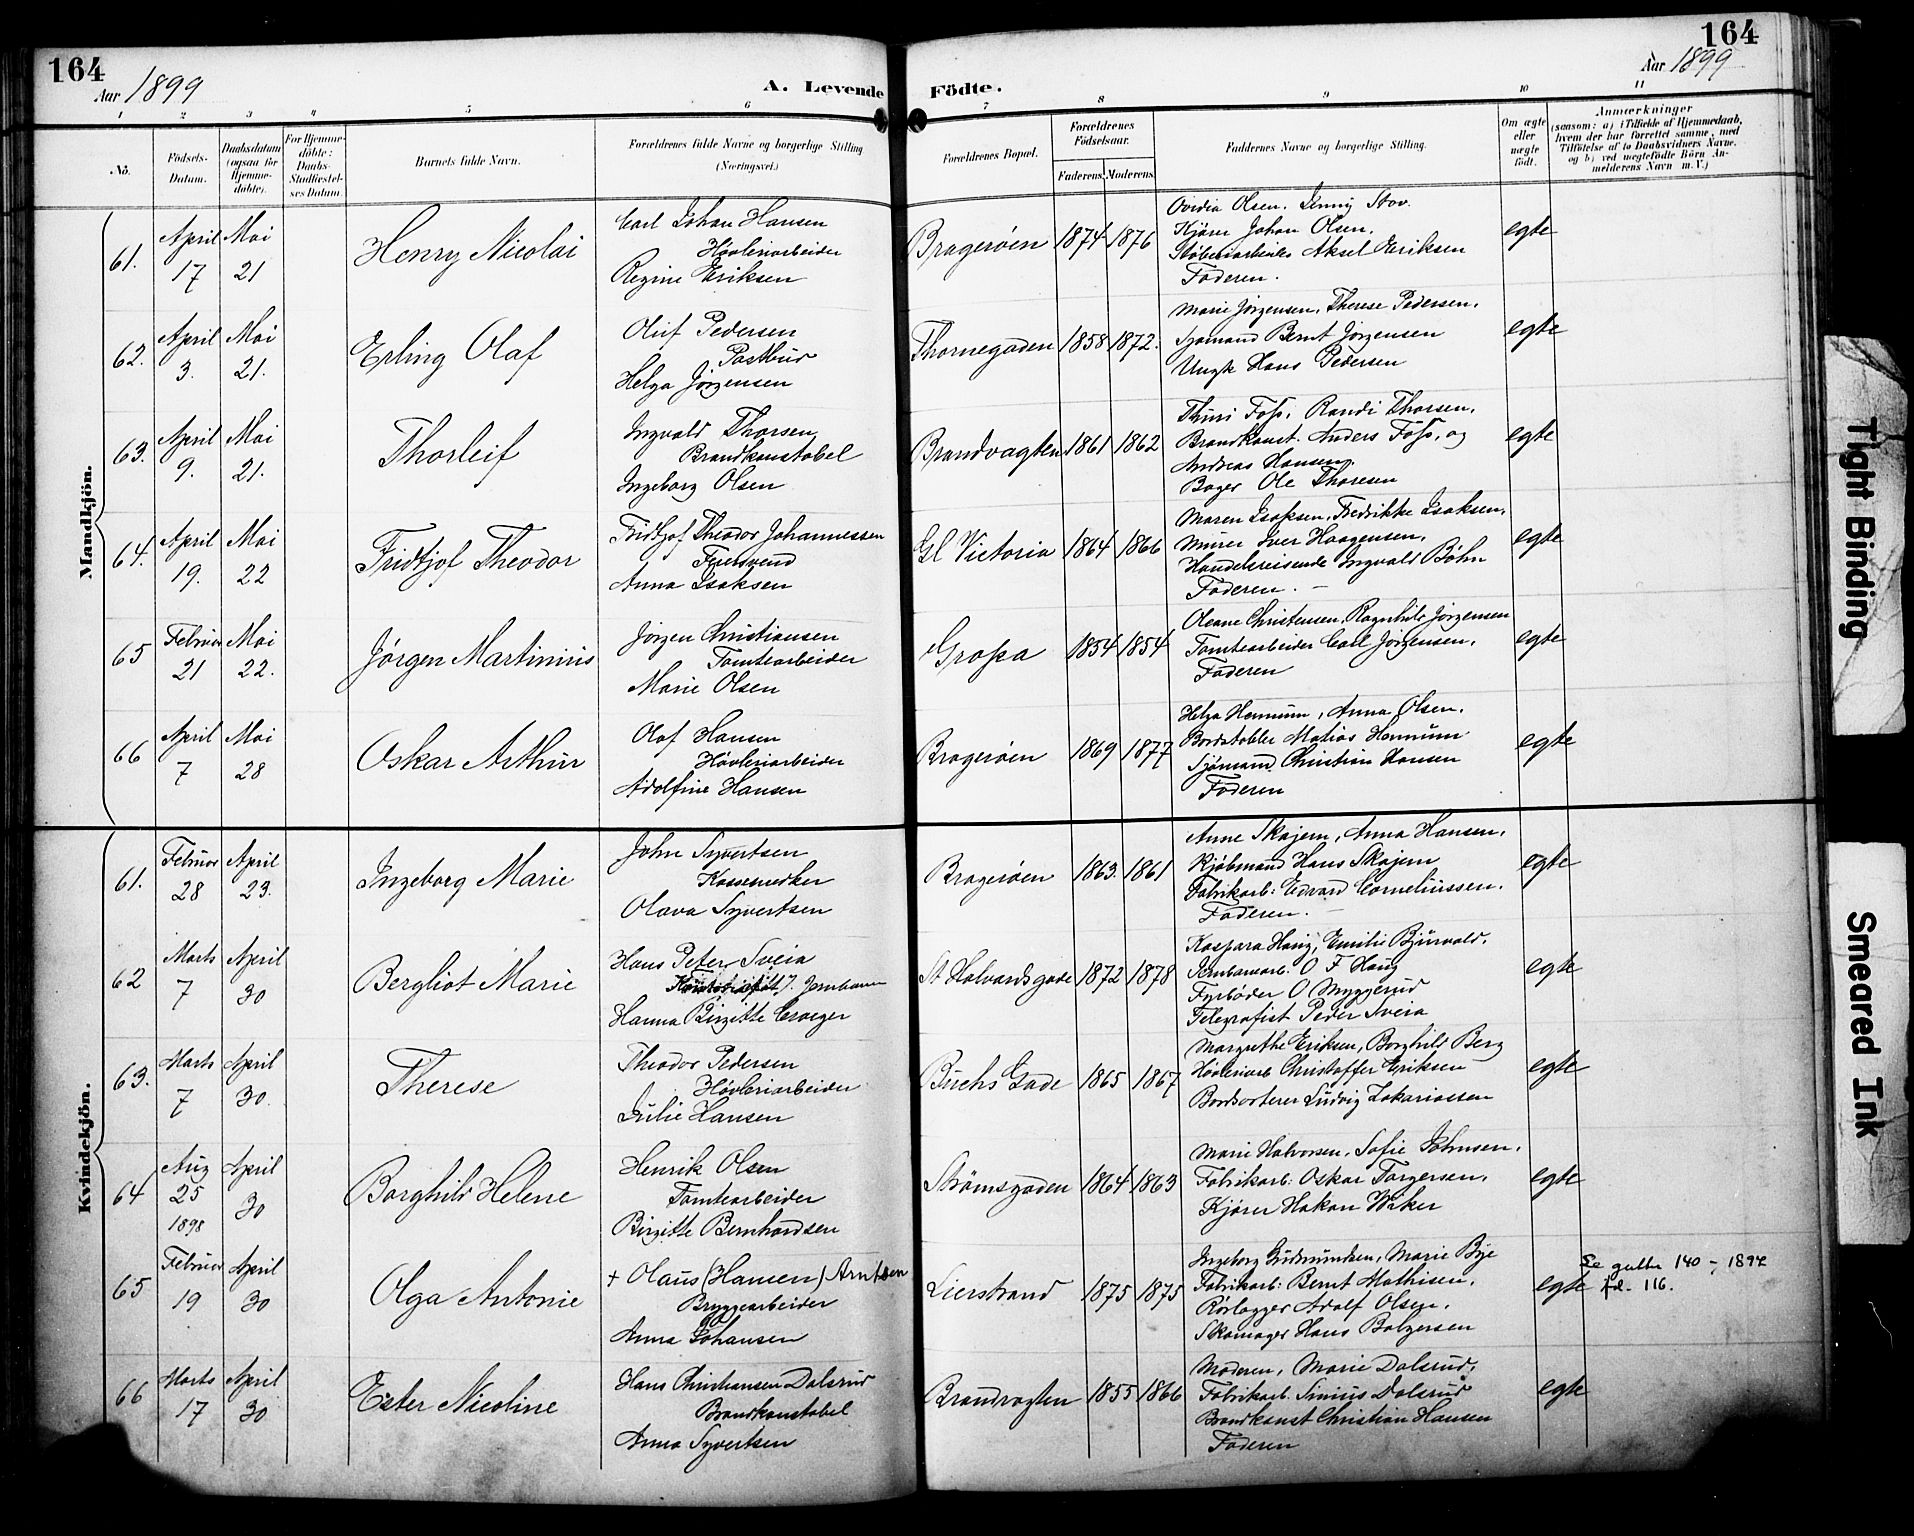 164
Aar 1899
A. Levende
1
2
3
4
5
6
No.
Födsels-
Datum.
Daabsdatum
(ogsaa for
Hjemme-
döbte).
For Hjemme-
döbte:
Daabs-
Stadfæstel-
ses Datum.
Barnets fulde Navn.
Forældrenes fulde Navne og borgerlige Stilling
(Næringsvei.)
Mandkjön.
61.
April
17
Mai
21
Henry Nicolai
Carl Johan Hansen
Høvleriarbeider
Regine Eriksen
62.
April
3.
Mai
21.
Erling Olaf
Oluf Pedersen
Postbud
Helga Jørgensen
63.
April
9.
Mai
21.
Thorleif
Ingvald Thorsen
Brandkonstabel
Ingeborg Olsen
64.
April
19.
Mai
22
Fridtjof Theodor
Fridtjof Theodor Johannessen
Feiersvend
Anna Isaksen
65
Februar
21
Mai
22.
Jørgen Martinius
Jørgen Christiansen
Tomtearbeider
Marie Olsen
66
April
7
Mai
28
Oskar Arthur
Olaf Hansen
Høvleriarbeider
Adolfine Hansen
Kvindekjön.
61.
Februar
28
April
23.
Ingeborg Marie
John Syvertsen
Kassemerker
Olava Syvertsen
62
Marts
7
April
30
Bergliot Marie
Hans Peter Sveia
Jernbanen
Hanna Birgitte Croeger
63.
Marts
7
April
30.
Therese
Theodor Pedersen
Høvleriarbeider
Julie Hansen
64
Aug
25
1898
April
30
Borghild Helene
Henrik Olsen
Tomtearbeider
Birgitte Bernhardsen
65
Februar
19
April
30
Olga Antonie
+ Olaus (Hansen) Arntsen
Bryggearbeider
Anna Johansen
66
Marts
17
April
30
Ester Nicoline
Hans Christiansen Dalsrud
Brandkonstabel
Anna Syvertsen
164
Aar 1899
Födte.
7
8
9
10
11
Forældrenes Bopæl.
Forældrenes
Födselsaar.
Faderens.
Moderens.
Faddernes Navne og borgerlige Stilling.
Om ægte
eller
uægte
født.
Anmærkninger
(saasom: a) i Tilfælde af Hjemmedaab,
hvem der har forrettet samme, med
Tilföielse af to Daabsvidners Navne.
og b) ved uægtefödte Börn An-
melderens Navn m. V.)
Bragerøen
1874
1876
Ovidia Olsen. Jenny Stov.
Kjører Johan Olsen.
Støberiarbeider Aksel Eriksen
Faderen.
egte
Thornegaden
1858
1872.
Marie Jørgensen, Therese Pedersen.
Sjømand Bernt Jørgensen
Ungk Hans Pedersen
egte
Brandvagten
1861
1862
Thuri Foss, Randi Thorsen,
Brandkonst. Anders Foss, og
Andreas Hansen.
Bager Ole Thoresen
egte
Gl Victoria
1864
1866
Maren Isaksen, Fredrikke Isaksen,
Murer Iver Haagensen,
Handelsreisende Ingvald Bøhn
Faderen.
egte
Grossa
1854
1854
Oleane Christensen, Ragnhild Jørgensen
Tomtearbeider Carl Jørgensen,
Faderen
egte
Bragerøen
1869
1877
Helga Hennum, Anna Olsen.
Bordstabler Matias Hennum
Sjømand Christian Hansen
Faderen
egte
Bragerøen
1863.
1861
Anne Skajem, Anna Hansen,
Kjøbmand Hans Skajem
Fabrikarb: Edvard Corneliussen.
Faderen.
egte
St Halvardsgade
1872
1878
Kaspara Haug, Emilie Bjürvald.
Jernbanarb. O F Haug
Fyrbøder O Myggerud
Telegrafist Peder Sveia
egte
Buchs Gade
1865
1867
Margrethe Eriksen, Borghild Berg
Høvleriarb Christoffer Eriksen
Bordsorterer Ludvig Zakariassen
egte
Strømsgaden
1864
1863
Marie Halvorsen, Sofie Johnsen,
Fabrikarb: Oskar Torgersen,
Kjører Hakon Wiker
egte
Lierstrand
1875
1875
Ingeborg Gudmundsen, Marie Bye
Fabrikarb: Bernt Mathisen,
Rørlægger Adolf Olsen,
Skomager Hans Bolgersen
egte
Se gutter 140 - 1894
fol. 116.
Brandvagten
1855
1866
Moderen, Marie Dalsrud,
Fabrikarb. Simius Dalsrud
Brandkonst Christian Hansen
Faderen
egte
Tight Binding
Smeared Ink